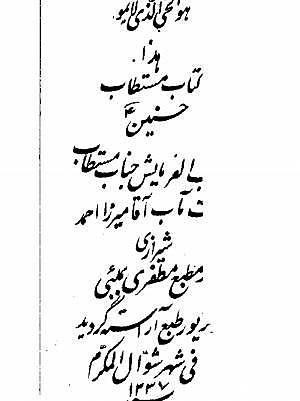 هوالحی الذی لایمو
هذا
کتاب مستطاب
حسنین ع
بالفرمایش جناب مستطاب
ت مآب آقا میرزا احمد
شیرازی
در مطبع مظفری بمبئی
بزیور طبع آراسته گردید
فی شهر شوال المکرم
۱۳۳۷